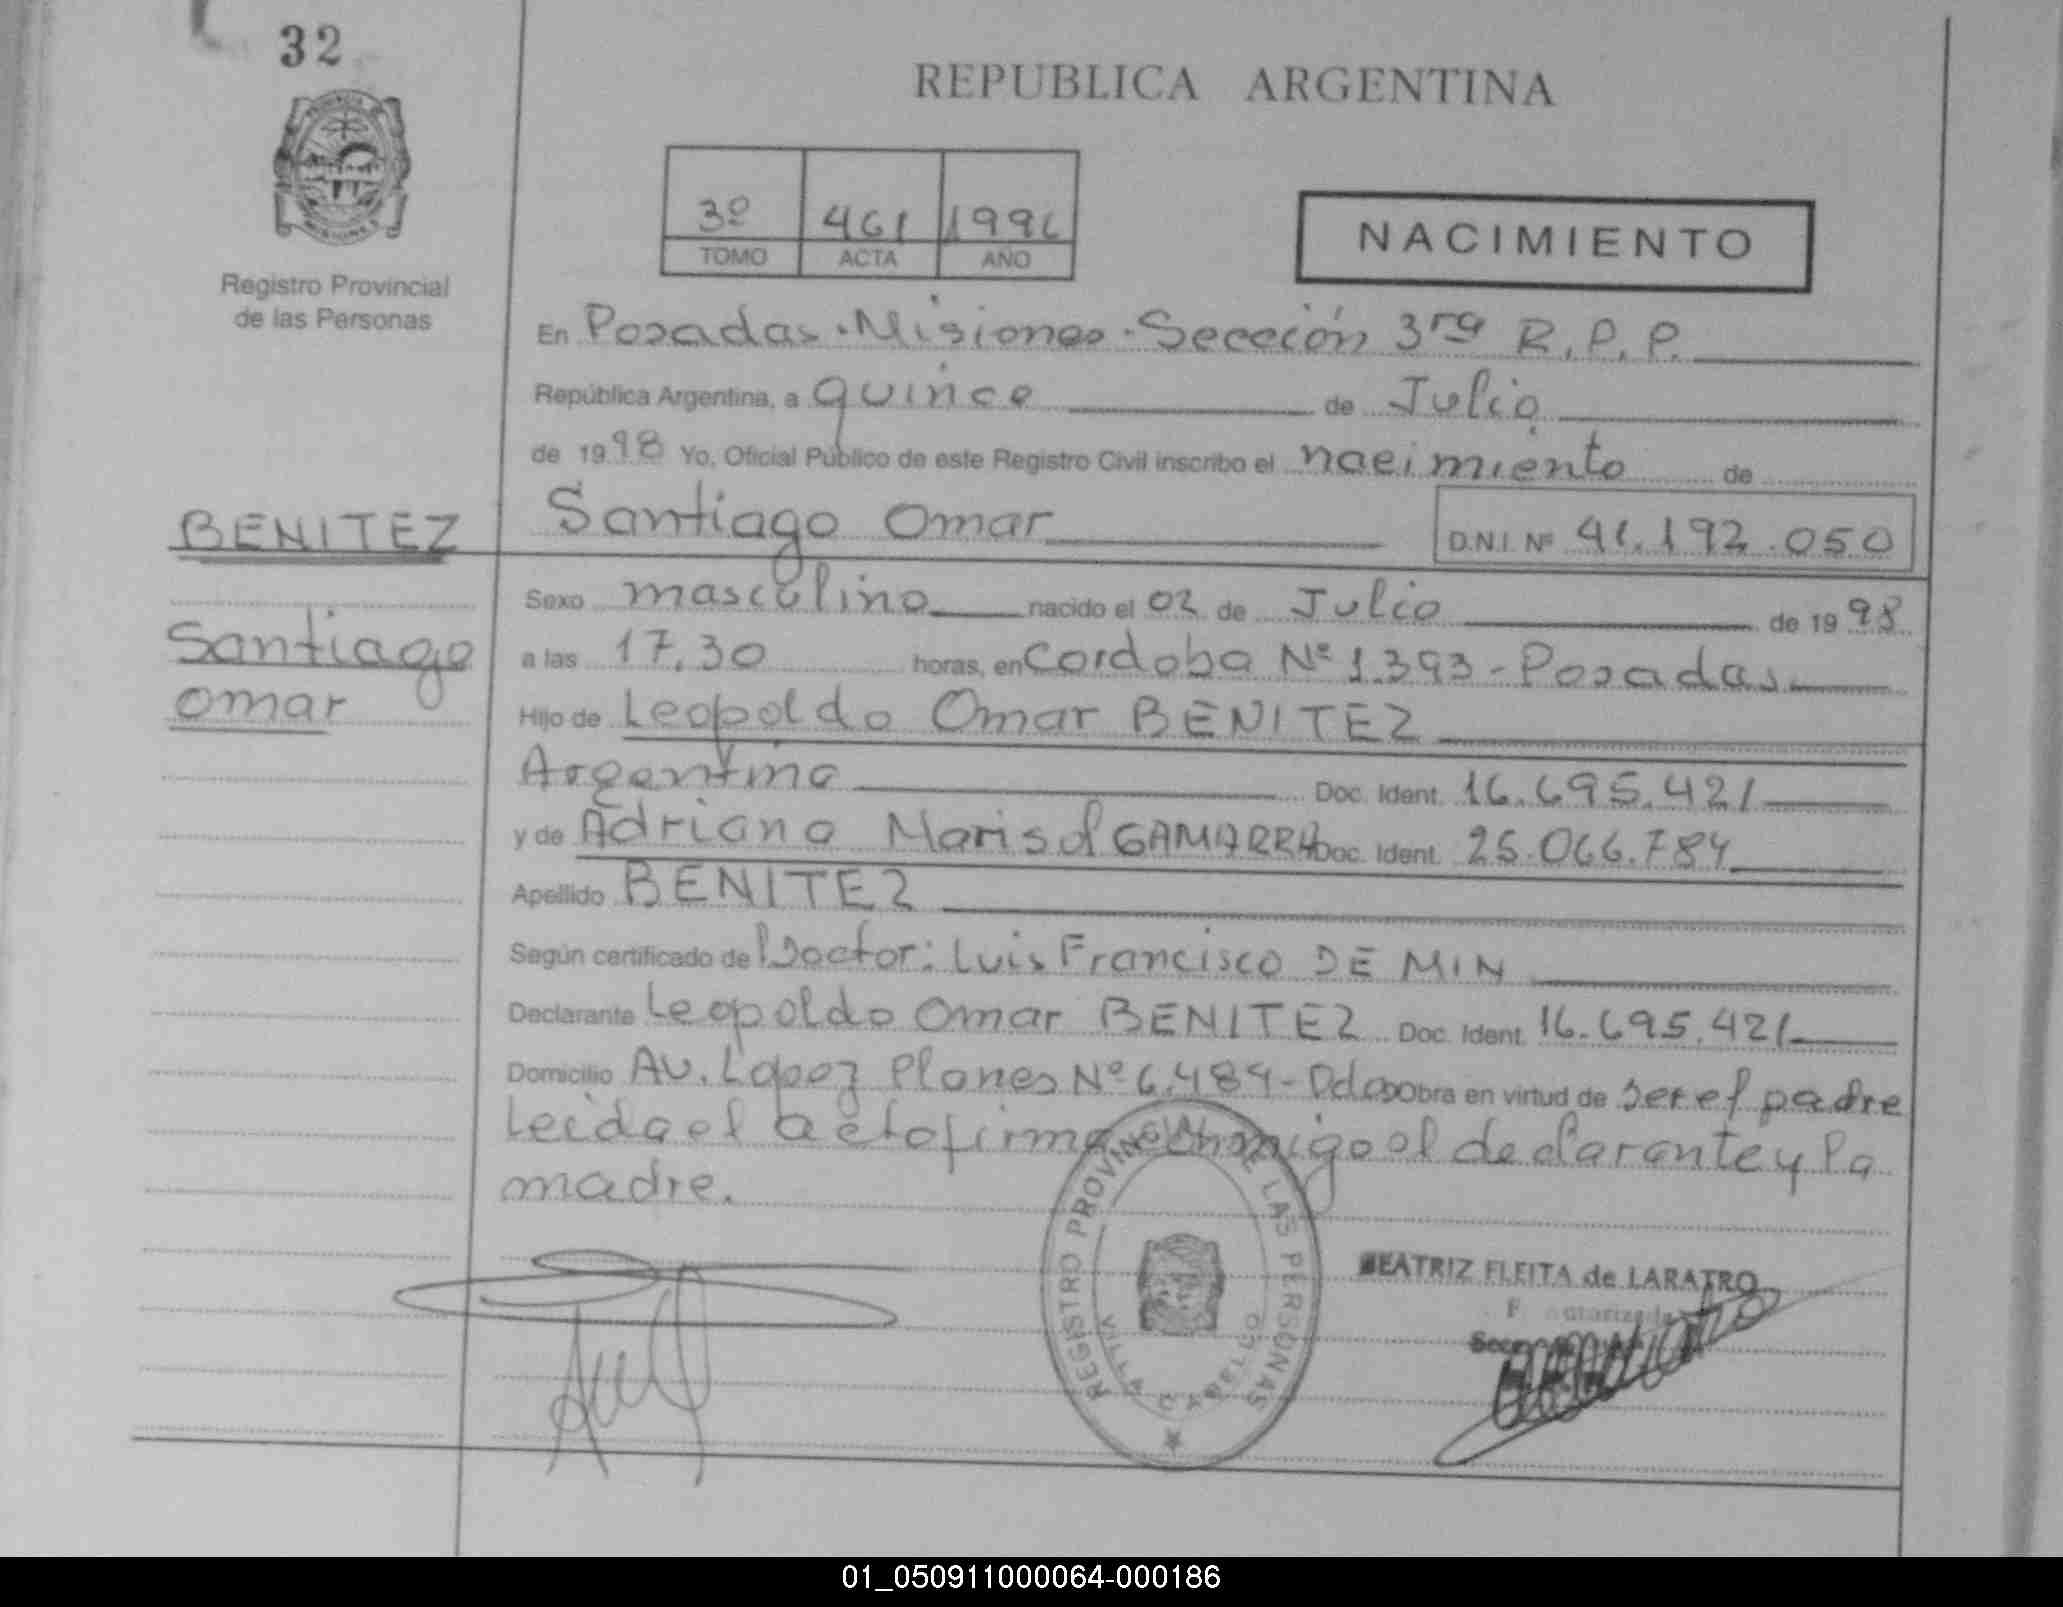 32
REPUBLICA ARGENTINA
3º 461 1998
TOMO ACTA AÑO
NACIMIENTO
Registro Provincial
de las Personas
En Posadas - Misiones - Sección 3ra R.P.P.
República Argentina, a quince de Julio
de 1998 Yo, Oficial Público de este Registro Civil inscribo el nacimiento de
BENITEZ
Santiago Omar D.N.I. Nº 41.192.050
Santiago
Omar
Sexo masculino nacido el 02 de Julio de 1998
a las 17.30 horas, en Cordoba Nº 1.393 - Posadas
Hijo de Leopoldo Omar BENITEZ
Argentina Doc. Ident. 16.695.421
y de Adriana Marisol GAMARRA Doc. Ident. 25.066.784
Apellido BENITEZ
Según certificado de Doctor: Luis Francisco DE MIN
Declarante Leopoldo Omar BENITEZ Doc. Ident. 16.695.421
Domicilio Av. Lopez Planes Nº 6.484 - Pdas Obra en virtud de ser el padre
Leida el acta firma conmigo el declarante y la
madre.
REGISTRO PROVINCIAL DE LAS PERSONAS
VILLA CABELLO
BEATRIZ FLEITA de LARATRO
01_050911000064-000186